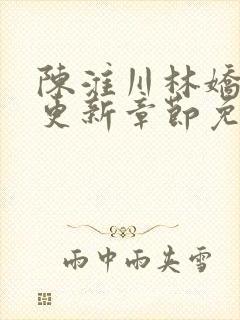 陳淮川林嬌
更新章節免
雨中雨夾雪